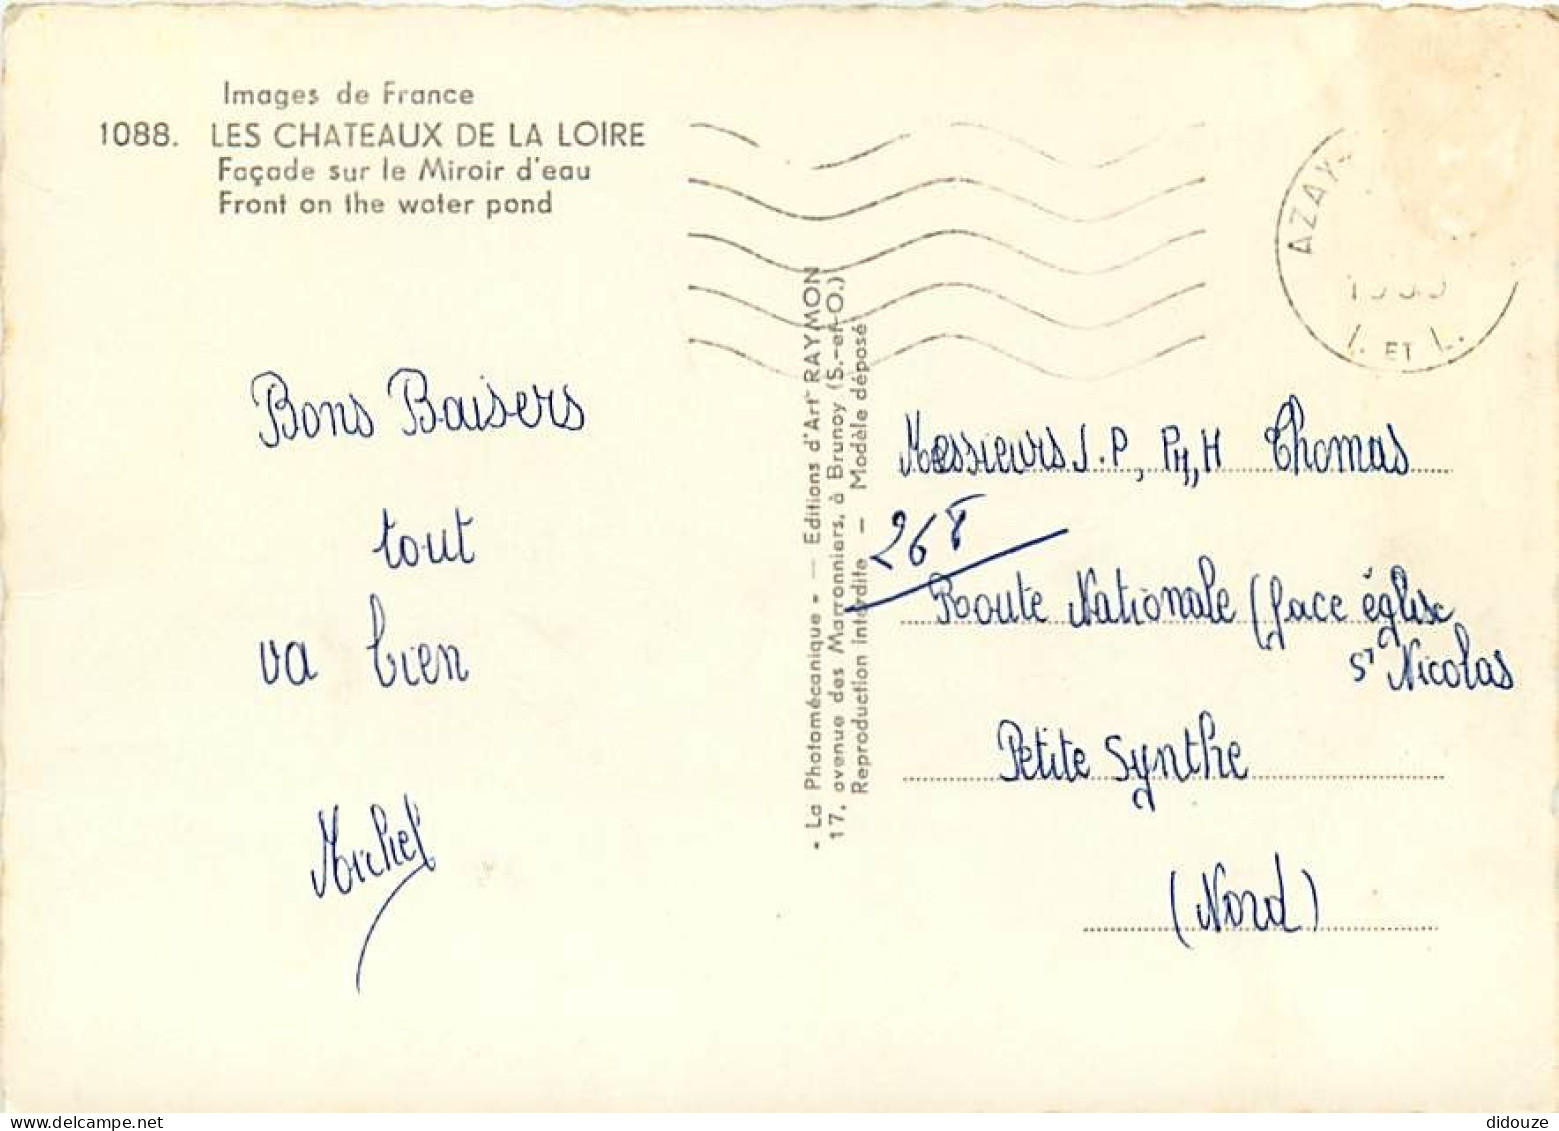 Images de France
1088. LES CHATEAUX DE LA LOIRE
Façade sur le Miroir d'eau
Front on the water pond
AZAY-
I. ET L.
Bons Baisers
tout
va bien
Michel
« La Photomécanique » — Editions d'Art RAYMON
17, avenue des Marronniers, à Brunoy (S.-et-O.)
Reproduction interdite — Modèle déposé
Messieurs J.P, PH, H Thomas
268
Route Nationale (face église
St Nicolas
Petite Synthe
(Nord)
delcampe.net
didouze